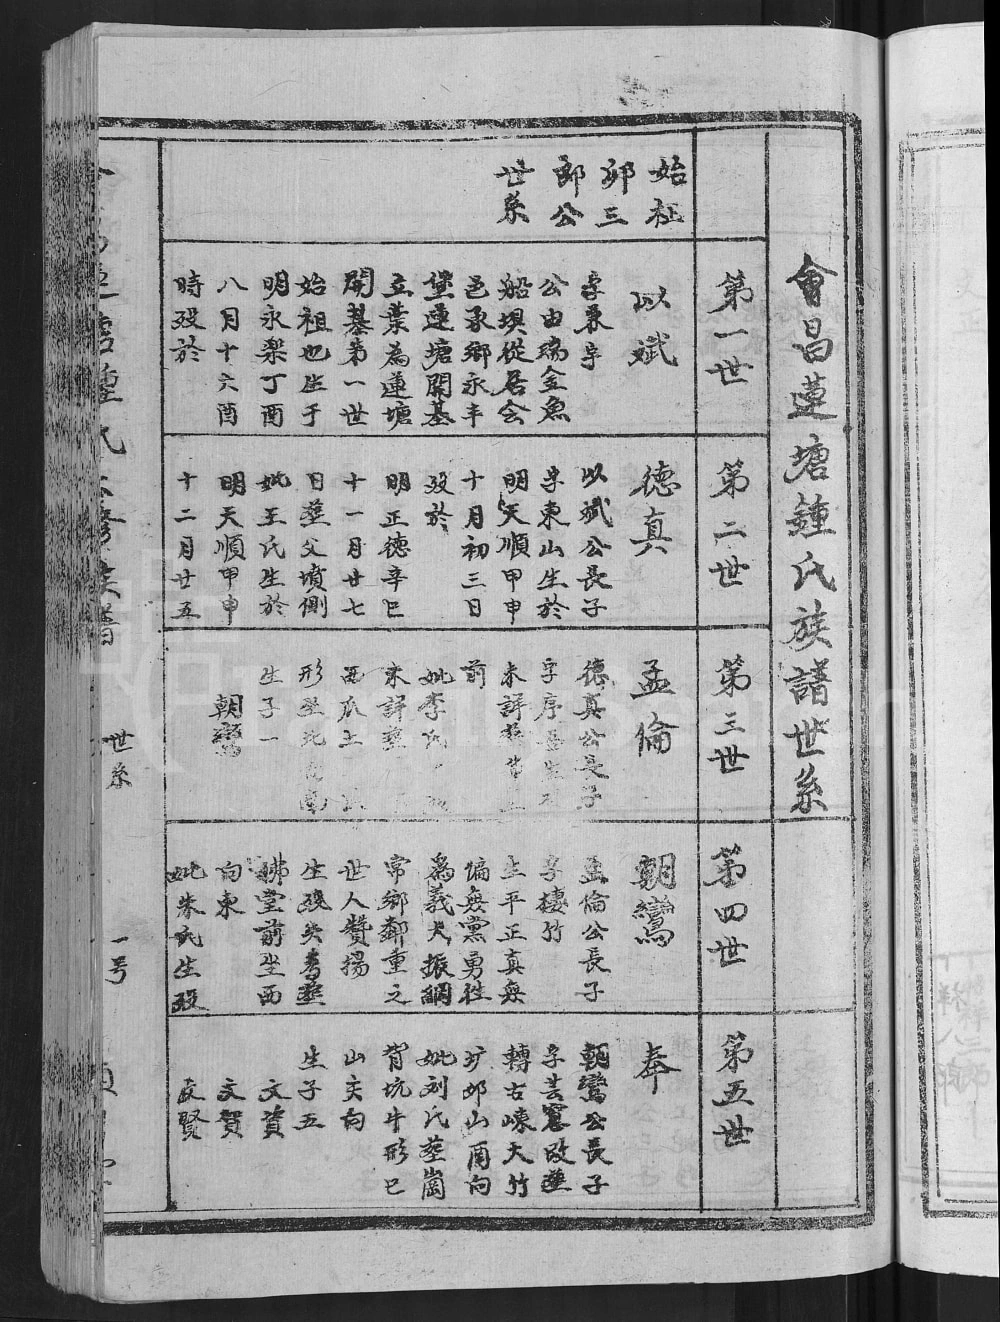 會昌蓮塘鍾氏族譜世系
第一世
第二世
第三世
第四世
第五世
始祖
邜三
郎公
世系
以斌
字秉
公由瑞金魚
船埧從居会
邑承鄉永丰
堡蓮塘開基
立業為蓮塘
開基第一世
始祖也生于
明永楽丁酉
八月十六酉
時歿於
德真
以斌公長子
字東山生於
明天順甲申
十月初三日
歿於
明正德辛巳
十一月廿七
日塟父墳側
妣王氏生於
明天順甲申
十二月廿五
孟倫
德真公長子
字序
未詳
前
妣李氏
未詳塟
西瓜土
形坐北
生子一
朝鸞
朝鸞
孟倫公長子
字棲竹
生平正真無
偏無黨勇徃
為義大振綱
常鄉鄰重之
世人贊揚
生歿失考塟
神堂前坐西
向東
妣朱氏生歿
奉
朝鸞公長子
字芸窓改塟
轉古崠大竹
圹邜山酉向
妣刘氏塟崗
背坑牛形巳
山亥向
生子五
文資
文賀
文賢
世系
一号